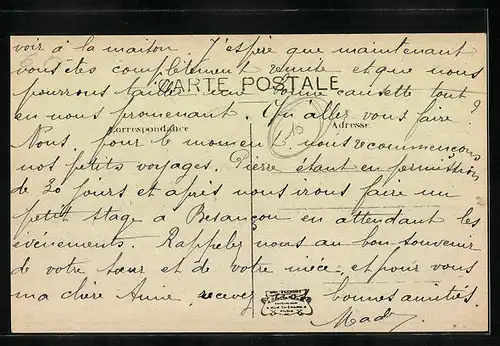 voir à la maison. J'espère que maintenant
vous êtes complètement remise et que nous
CARTE POSTALE
pourrons tailler une bonne causette tout
en nous promenant. Qu'allez vous faire?
Correspondance
Adresse
Nous, pour le moment nous recommençons
nos petits voyages. Pierre étant en permission
de 20 jours et après nous irons faire un
petit stage à Besançon en attendant les
événements. Rappelez nous au bon souvenir
de votre sœur et de votre nièce, et pour vous
ma chère Amie, recevez bonnes amitiés.
Mady